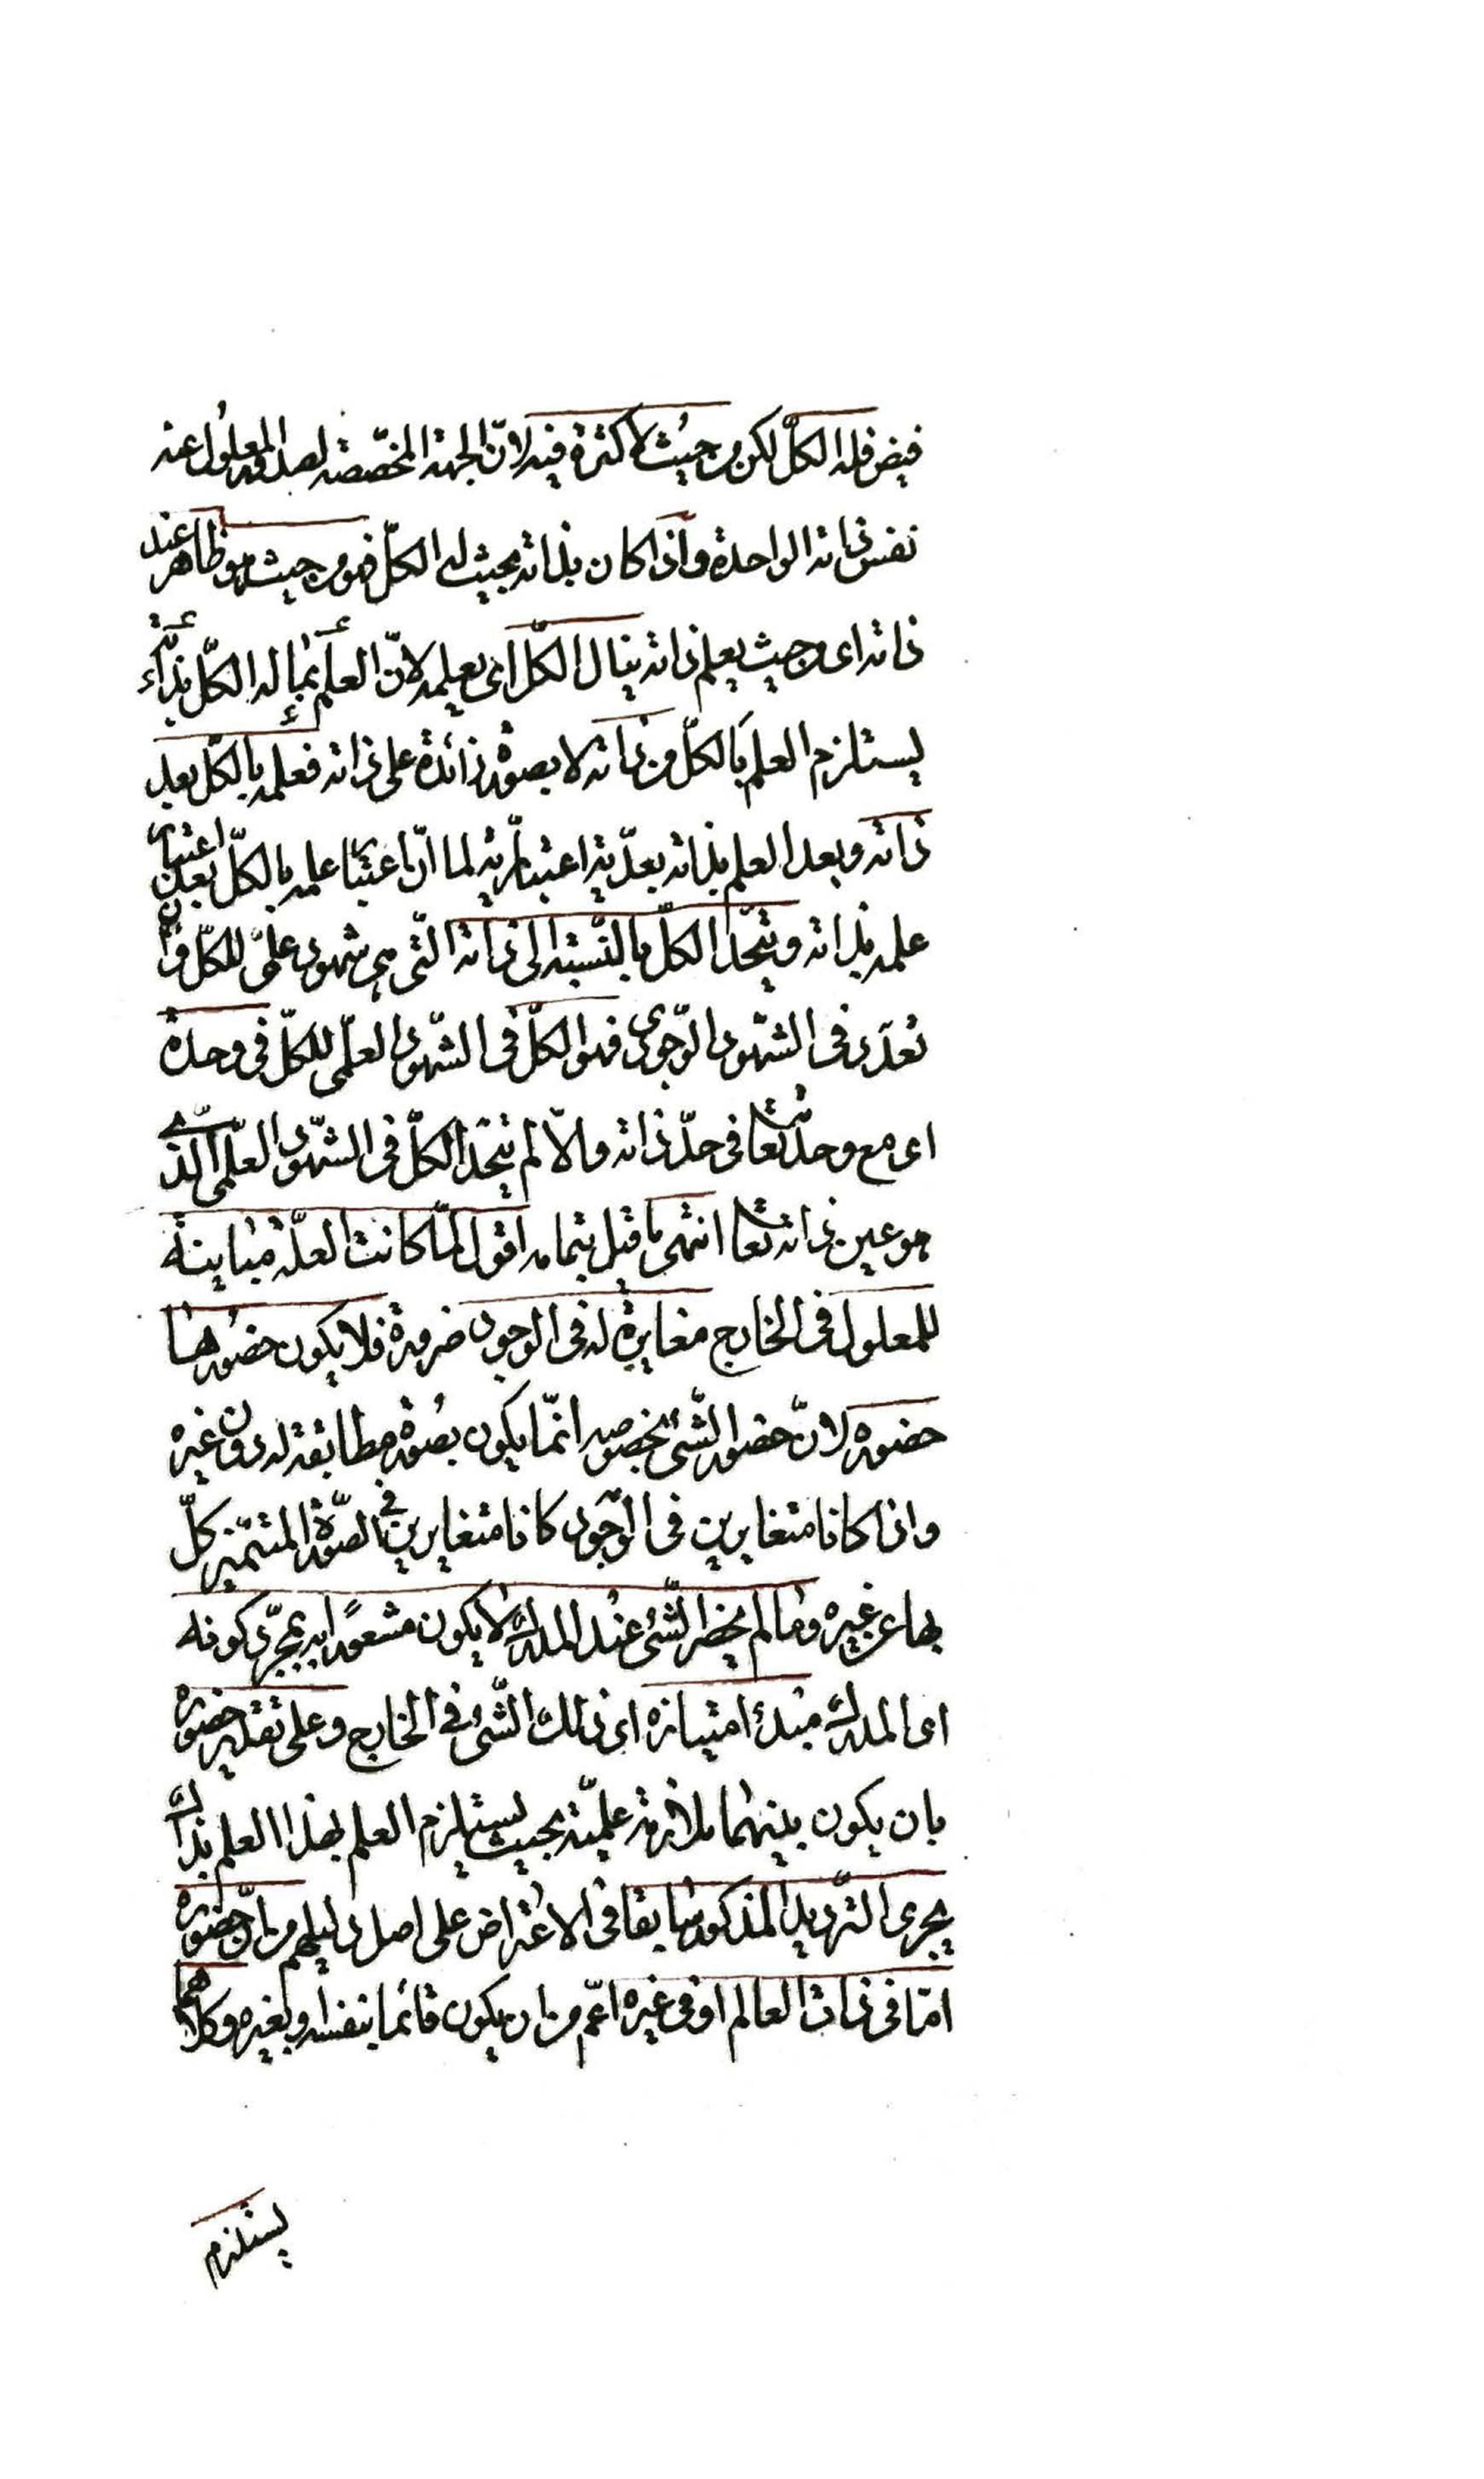 فيض فله الكلّ لكن من حيث لا كثرة فيه لانّ الجهة المخصّصة لصدور المعلول عنه
نفس ذاته الواحدة واذا كان بذاته بحيث له الكلّ فهو من حيث هو ظاهر عند
ذاته اى من حيث يعلم ذاته ينال الكلّ اى يعلمه لانّ العلم بما له الكلّ بذاته
يستلزم العلم بالكلّ من ذاته لا بصورة زائدة على ذاته فعلمه بالكلّ بعد
ذاته وبعد العلم بذاته بعدّية اعتباريّة لما انّ اعتبار علمه بالكلّ بعد اعتبار
علمه بذاته ويتّحد الكلّ بالنّسبة الى ذاته الّتى هى شهود علمىّ للكلّ وان
تعدّد فى الشّهود الوجودى فهو الكلّ فى الشّهود العلمّى للكلّ فى وحدة
اى مع وحدته تعا فى حدّ ذاته والّا لم يتّحد الكلّ فى الشّهود العلمّى الّذى
هو عين ذاته تعا انتهى ما قيل بتمامه اقول لمّا كانت العلّة مباينة
للمعلول فى الخارج مغايرة له فى الوجود ضرورة فلا يكون حضورها
حضوره لانّ حضور الشّئ بخصوصه انّما يكون بصورة مطابقة له دون غيره
واذا كانا متغايرين فى الوجود كانا متغايرين فى الصّورة المتميّز كلّ
بها عن غيره وما لم يحضر الشّئ عند المدرك لا يكون مشعورا به بمجرّد كونه
اى المدرك مبدء امتيازه اى ذلك الشّئ فى الخارج وعلى تقدير حضوره
بان يكون بينهما ملازمة علميّة بحيث يستلزم العلم بهذا العلم بذاك
يجرى الترديد المذكور سابقا فى الاعتراض على اصل دليلهم من انّ حضوره
امّا فى ذات العالم او فى غيره اعمّ من ان يكون قائما بنفسه او بغيره وكلاهما
يستلزم